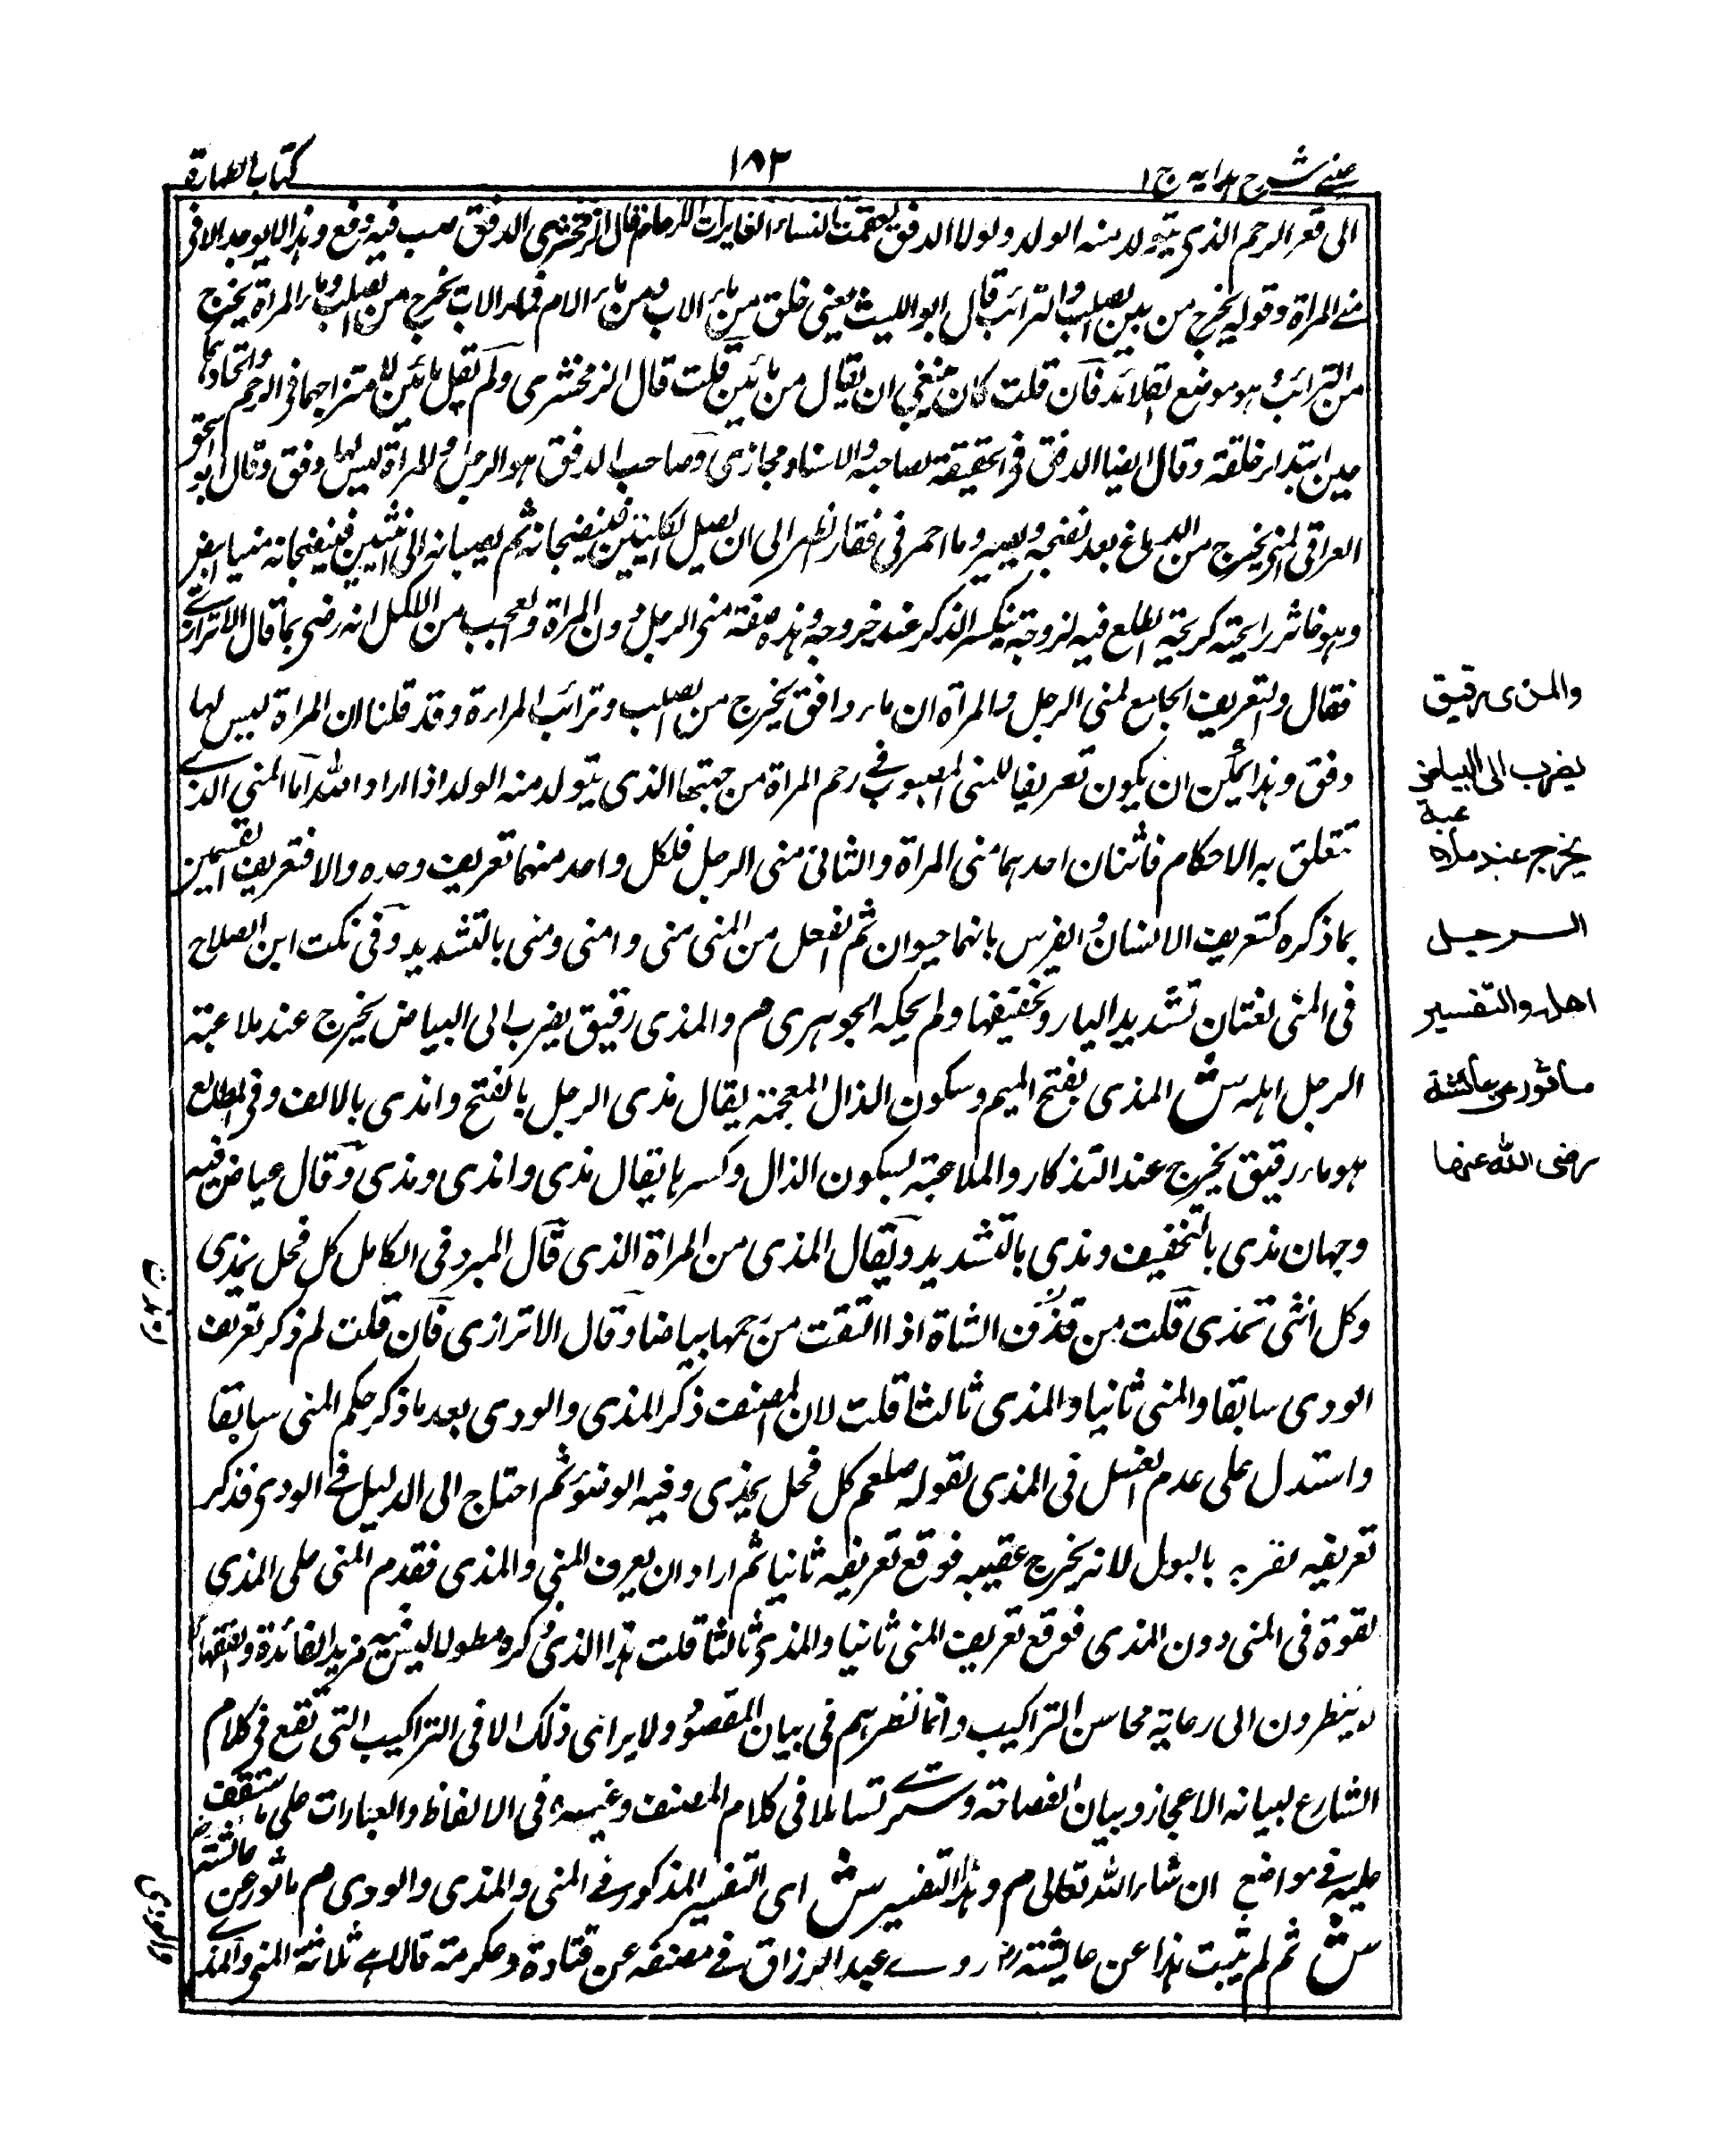 عيني شرح هدايه ج ١
١٨٢
كتاب الطهارة
الى قعر الرحم الذي يتولد منه الولد ولولا الدفق لعقمت النساء الغايرات الارحام قال الزمخشري الدفق صب فيه دفع وهذا لا يوجد الا في
مني المراة وقوله يخرج من بين الصلب والترائب قال ابو الليث يعني خلق من ماء الاب ومن ماء الام فماء الاب يخرج من الصلب وماء المراة يخرج
من الترائب وهو موضع القلائد فان قلت كان ينبغي ان يقال من مائين قلت قال الزمخشري ولم يقل مائين لامتزاجهما في الرحم واتحادهما
حين ابتداء خلقته وقال ايضا الدفق في الحقيقة لصاحبه والاسناد مجازي وصاحب الدفق هو الرجل والمراة ليس لها دفق وقال ابو اسحق
العراقي المني يخرج من الدماغ بعد نضجه ويصير دما احمر في فقار الظهر الى ان يصل الكليتين فينضجانه ثم يصبانه الى الانثيين فينضجانه منيا ابيض
وهو خاثر رايحته كريحة الطلع فيه لزوجة ينكسر الذكر عند خروجه وهذه صفة مني الرجل دون المراة والعجب من الاكمل انه رضي بما قال الاترازي
فقال والتعريف الجامع لمني الرجل والمراة ان ماء دافق يخرج من الصلب وترائب المراة وقد قلنا ان المراة ليس لها
دفق وهذا يمكن ان يكون تعريفا للمني المصبوب في رحم المراة من جهتها الذي يتولد منه الولد اذا اراد الله اما المني الذي
تتعلق به الاحكام فاثنان احدهما مني المراة والثاني مني الرجل فلكل واحد منهما تعريف وحده والا فتعريف القسمين
بما ذكره كتعريف الانسان والفرس بانهما حيوان ثم الفعل من المني منى وامنى ومنى بالتشديد وفي نكت ابن الصلاح
في المني لغتان تشديد الياء وتخفيفها ولم يحكه الجوهري م والمذي رقيق يضرب الى البياض يخرج عند ملاعبة
الرجل اهله ش المذي بفتح الميم وسكون الذال المعجمة يقال مذى الرجل بالفتح وامذى بالالف وفي المطالع
هو ماء رقيق يخرج عند التذكار والملاعبة بسكون الذال وكسرها يقال مذى وامذى ومذي وقال عياض فيه
وجهان مذي بالتخفيف ومذي بالتشديد ويقال المذي من المراة الذي قال المبرد في الكامل كل فحل يمذي
وكل انثى تمذي قلت من قذف الشاة اذا القت من رحمها بياضا وقال الاترازي فان قلت لم ذكر تعريف
الودي سابقا والمني ثانيا والمذي ثالثا قلت لان المصنف ذكر المذي والودي بعد ما ذكر حكم المني سابقا
واستدل على عدم الغسل في المذي بقوله صلعم كل فحل يمذي وفيه الوضوء ثم احتاج الى الدليل في الودي فذكر
تعريفه لقربه بالبول لانه يخرج عقيبه فوقع تعريفه ثانيا ثم اراد ان يعرف المني والمذي فقدم المني على المذي
لقوة في المني دون المذي فوقع تعريف المني ثانيا والمذي ثالثا قلت هذا الذي ذكره مطولا ليس فيه مزيد الفائدة والفقهاء
لا ينظرون الى رعاية محاسن التراكيب وانما نظرهم في بيان المقصود ولا يراعى ذلك الا في التراكيب التي تقع في كلام
الشارع لبيانه الاعجاز وبيان الفصاحة وسترى تساهلا في كلام المصنف وغيره في الالفاظ والعبارات على ما ستقف
عليه في مواضع ان شاء الله تعالى م وهذا التفسير ش اي التفسير المذكور في المني والمذي والودي م ماثور عن عائشة رض
ش ثم لم يثبت هذا عن عايشة رض روى عبد الرزاق في مصنفه عن قتادة وعكرمة قالا هي ثلاثة المني والمذي
والمذى رقيق
يضرب الى البياض
يخرج عند ملاعبة
الرجل
اهله والتفسير
ماثور عن عائشة
رضى الله عنها
والودي